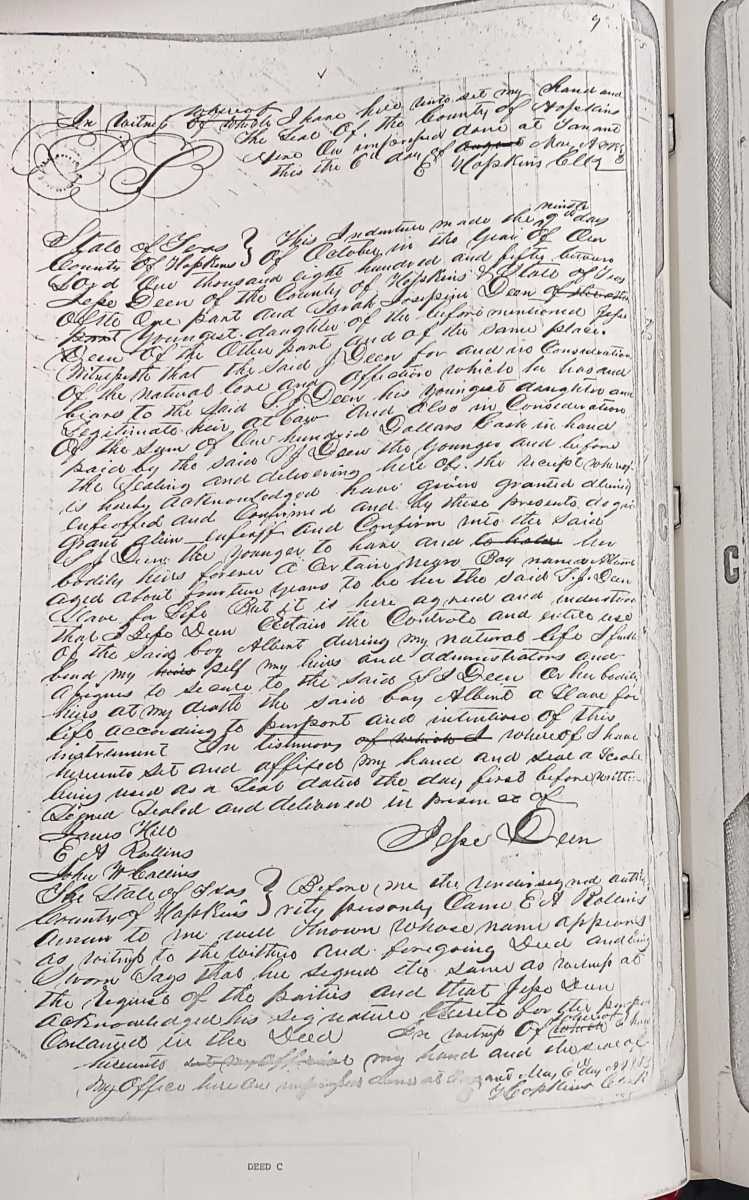 9
In Witness whereof of which I have here unto set my hand and
The Seal Of the County of Hopkins
here on impressed done at
this the 6th day of August May A
Hopkins Clk
State of Texas } This Indenture made the ninth day
County Of Hopkins } Of October, in the Year Of Our
Lord One thousand eight hundred and fifty
Jesse Deen of the County of Hopkins & State of Texas
of the One part and Sarah Josephine Deen
part Youngest daughter of the before mentioned Jesse
Deen Of the Other part and of the same place.
Witnesseth that the Said J Deen for and in Consideration
Of the natural love and Affection which he has and
bears to the Said S. J Deen his Youngest daughter and
Legitimate heir at law and also in Consideration
Of the Sum of One hundred Dollars Cash in hand
paid by the said S J Deen the Younger and before
the Sealing and delivering here of. the receipt whereof
is hereby acknowledged have given granted aliened
enfeoffed and Confirmed and by these presents do give
grant alien enfeoff and Confirm unto the Said
S J Deen the Younger to have and to hold her
bodily heirs forever a Certain Negro Boy named
aged about fourteen Years to be her the said S. J. Deen
Slave for Life But it is here agreed and understood
that I Jesse Deen the Controle and entire use
Of the Said boy Albert during my natural life I further
bend my heirs self my heirs and administrators and
assignes to secure to the Said S J Deen Or her bodily
heirs at my death the said boy Albert a Slave for
life according to purport and intentions Of this
instrument In testimony of which I whereof I have
hereunto Set and affixed my hand and Seal a Scroll
being used as a Seal dated the day first before written
Signed Sealed and delivered in presence of
James Hill
E A Rollins Jesse Deen
John W
The State of Texas } Before me the undersigned autho
County of Hopkins } rity personly Came E A Rollins
to me well Known whose name appears
as witness to the within and foregoing Deed and being
Sworn Says that he signed the same as witness at
the request of the parties and that Jesse Deen
acknowledged his signature thereto for the purpose
Contained in the Deed In witness Of which whereof I have
hereunto set my Official my hand and the seal of
my Office here on impressed done at May 6th day
Hopkins Clerk
DEED C
C